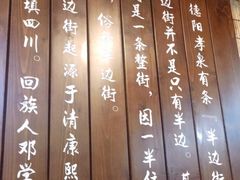 德阳孝泉有条『半边街
边街并不是只有半边。其
是一条整街，因一半住
，俗称半边街。
边街起源于清康熙
填四川。回族人邓学